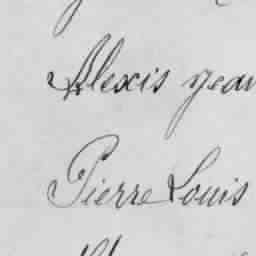 Alexis Jean
Pierre Louis